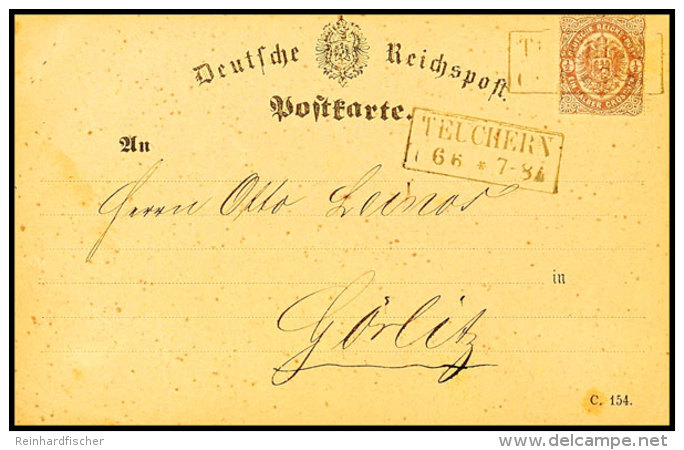 Deutsche Reichspost.
Postkarte.
TEUCHERN
6 6 * 7-8
An
Herrn Otto Leinos
in
Görlitz
C. 154.
Reinhardfischer
www.delcampe.net